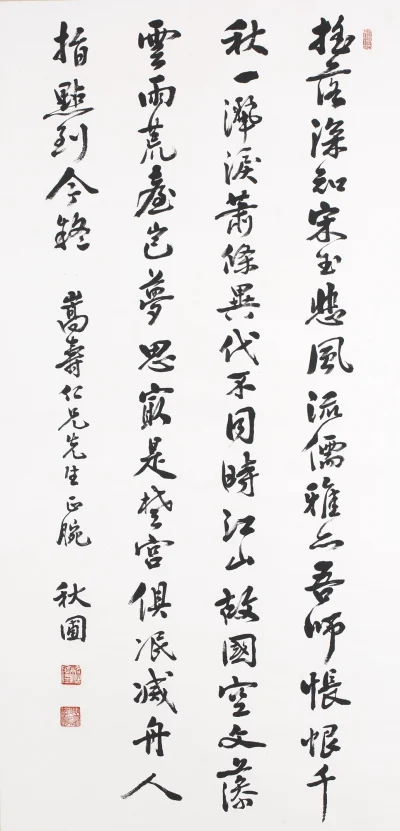 搖落深知宋玉悲風流儒雅亦吾師悵恨千
秋一灑淚蕭條異代不同時江山故國空文藻
雲雨荒臺豈夢思最是楚宮俱泯滅舟人
指點到今疑
嵩壽仁兄先生正腕
秋圃